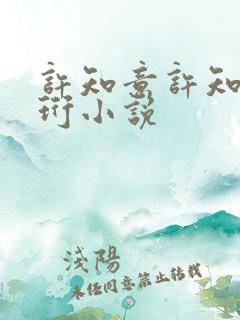 許知意許知
珩小說
淺陽
未經同意禁止轉載